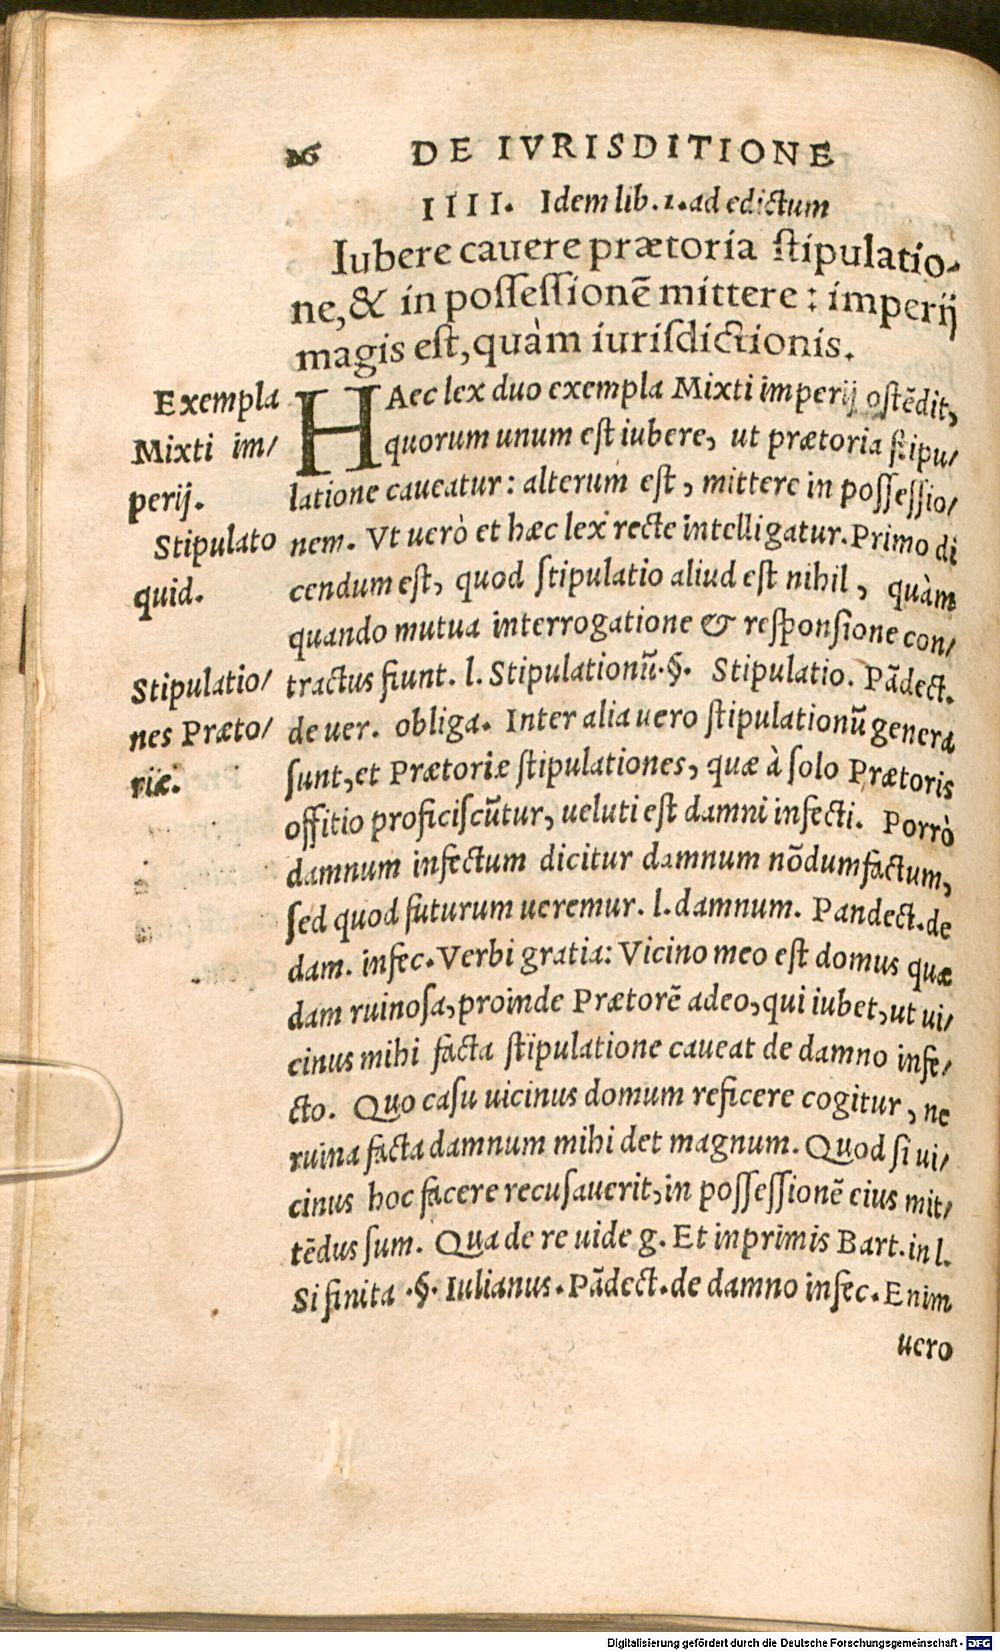 26 DE IVRISDITIONE
IIII. Idem lib. 1. ad edictum
Iubere cauere prætoria stipulatio-
ne, & in possessionē mittere : imperij
magis est, quàm iurisdictionis.
Exempla
Mixti im/
perij.
HAec lex duo exempla Mixti imperij ostēdit,
quorum unum est iubere, ut prætoria stipu/
latione caueatur: alterum est, mittere in possessio/
Stipulato
quid.
nem. Vt uerò et hæc lex recte intelligatur. Primo di
cendum est, quod stipulatio aliud est nihil, quàm
quando mutua interrogatione & responsione con/
Stipulatio/
nes Præto/
riæ.
tractus fiunt. l. Stipulationū. §. Stipulatio. Pādect.
de uer. obliga. Inter alia uero stipulationū genera
sunt, et Prætoriæ stipulationes, quæ à solo Prætoris
offitio proficiscūtur, ueluti est damni infecti. Porrò
damnum infectum dicitur damnum nōdum factum,
sed quod futurum ueremur. l. damnum. Pandect. de
dam. infec. Verbi gratia: Vicino meo est domus quæ
dam ruinosa, proinde Prætorē adeo, qui iubet, ut ui/
cinus mihi facta stipulatione caueat de damno infe/
cto. Quo casu uicinus domum reficere cogitur, ne
ruina facta damnum mihi det magnum. Quod si ui/
cinus hoc facere recusauerit, in possessionē eius mit/
tēdus sum. Qua de re uide g. Et inprimis Bart. in l.
Si finita .§. Iulianus. Pādect. de damno infec. Enim
uero
Digitalisierung gefördert durch die Deutsche Forschungsgemeinschaft - DFG